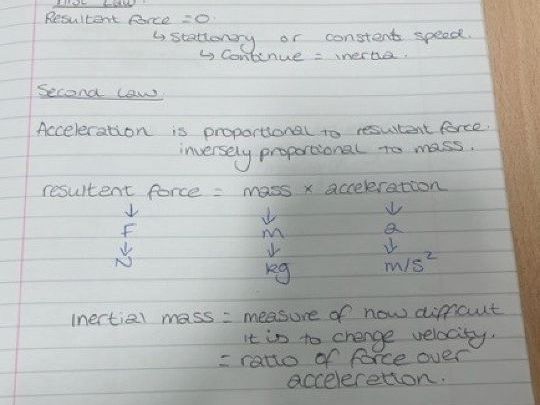 First Law.
Resultent force = 0
↳ Stationary or constent speed.
↳ Continue = inertia.
Second Law.
Acceleration is proportional to resultent force.
inversely proportional to mass.
resultent force = mass × acceleration
↓ ↓ ↓
F m a
↓ ↓ ↓
N kg m/s²
Inertial mass = measure of how difficult
it is to change velocity.
= ratio of force over
acceleretion.